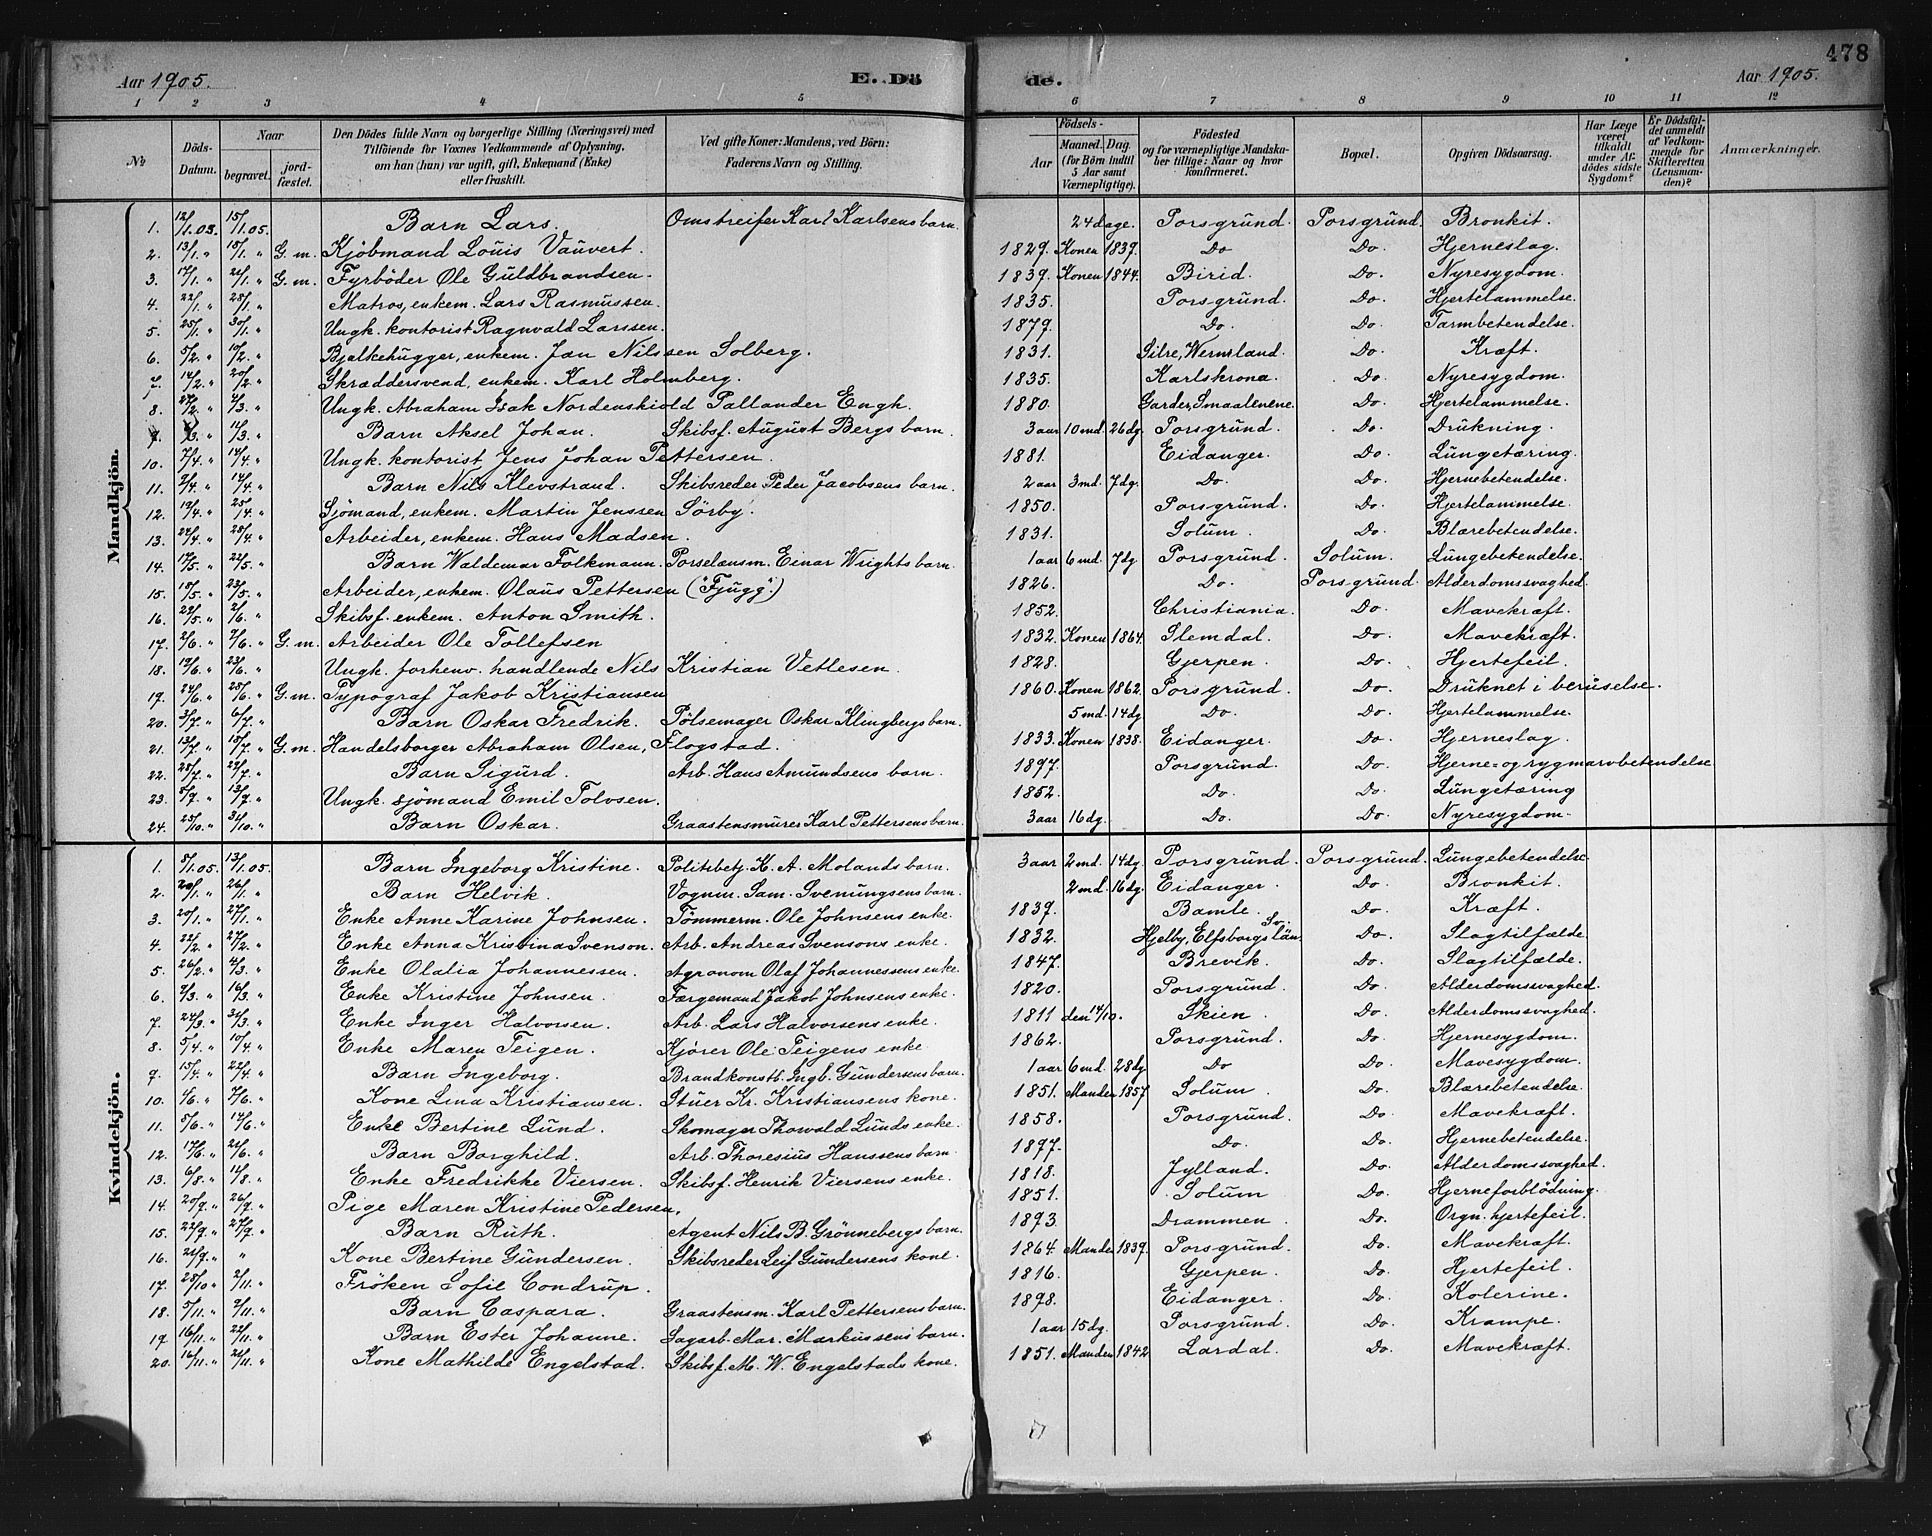 478
Aar 1905. E. Dö de. Aar 1905.
1 2 3 4 5 6 7 8 9 10 11 12
No
Döds-Datum.
Naar
begravet.
jord-fæstet.
Den Dödes fulde Navn og borgerlige Stilling (Næringsvei) med Tilföiende for Voxnes Vedkommende af Oplysning, om han (hun) var ugift, gift, Enkemand (Enke) eller fraskilt.
Ved gifte Koner: Mandens, ved Börn: Faderens Navn og Stilling.
Födsels-
Aar
Maaned. Dag. (for Börn indtil 5 Aar samt Værnepligtige).
Födested og for værnepligtige Mandskaber tillige: Naar og hvor konfirmeret.
Bopæl.
Opgiven Dödsaarsag.
Har Læge været tilkaldt under Afdödes sidste Sygdom?
Er Dödsfaldet anmeldt af Vedkommende for Skifteretten (Lensmanden)?
Anmærkninger.
Mandkjön.
1. 12/1.05. 15/1.05. Barn Lars. Omstreifer Karl Karlsens barn. 24 dage. Porsgrund. Porsgrund. Bronkit.
2. 13/1. " 15/1. " G. m. Kjöbmand Louis Vauvert. 1829. Konen 1839. Do Do. Hjerneslag.
3. 17/1. " 21/1. " G. m. Fyrböder Ole Guldbrandsen. 1839. Konen 1844. Birid. Do. Nyresygdom.
4. 22/1. " 28/1. " Matros, enkem. Lars Rasmussen. 1835. Porsgrund. Do. Hjertelammelse.
5. 25/1. " 30/1. " Ungk. kontorist Ragnvald Larssen. 1879. Do. Do. Tarmbetendelse.
6. 5/2. " 10/2. " Bjalkehugger, enkem. Jan Nilssen Solberg. 1831. Silre, Wermland. Do. Kræft.
7. 14/2. " 20/2. " Skræddersvend, enkem. Karl Holmberg. 1835. Karlskrona. Do. Nyresygdom.
8. 27/2. " 4/3. " Ungk. Abraham Isak Nordenskiold Pallander Engh. 1880. Garder, Smaalenene. Do. Hjertelammelse.
9. /3. " 11/3. " Barn Aksel Johan. Skibsf. August Bergs barn. 3 aar 10 md. 26 dg. Porsgrund. Do. Drukning.
10. 7/4. " 14/4. " Ungk. kontorist Jens Johan Pettersen. 1881. Eidanger. Do. Lungetæring.
11. 9/4. " 14/4. " Barn Nils Klevstrand. Skibsreder Peder Jacobsens barn. 2 aar 3 md. 7 dg. Do. Do. Hjernebetendelse.
12. 19/4. " 25/4. " Sjömand, enkem. Martin Jenssen Sörby. 1850. Porsgrund. Do. Hjertelammelse.
13. 24/4. " 28/4. " Arbeider, enkem. Hans Madsen. 1831. Solum. Do. Blærebetendelse.
14. 17/5. " 22/5. " Barn Waldemar Folkmann. Porselænsm. Einar Wrights barn. 1 aar 6 md. 7 dg. Porsgrund. Solum. Lungebetendelse.
15. 18/5. " 23/5. " Arbeider, enkem. Olaus Pettersen ("Fjugg".) 1826. Do. Porsgrund. Alderdomssvaghed.
16. 22/5. " 2/6. " Skibsf. enkem. Anton Smith. 1852. Christiania. Do. Mavekræft.
17. 2/6. " 7/6. " G. m. Arbeider Ole Tollefsen 1832. Konen 1864. Slemdal. Do. Mavekræft.
18. 19/6. " 23/6. " Ungk. forhenv. handlende Nils Kristian Vetlesen 1828. Gjerpen. Do. Hjertefeil.
19. 24/6. " 28/6. " G. m. Typograf Jakob Kristiansen 1860. Konen 1862. Porsgrund. Do. Druknet i beruselse.
20. 3/7. " 6/7. " Barn Oskar Fredrik. Pölsemager Oskar Klingbergs barn. 5 md. 14 dg. Do. Do. Hjertelammelse.
21. 13/7. " 18/7. " G. m. Handelsborger Abraham Olsen, Flogstad. 1833. Konen 1838. Eidanger. Do. Hjerneslag.
22. 28/7. " 29/7. " Barn Sigurd. Arb. Hans Amundsens barn. 1897. Porsgrund. Do. Hjerne= og rygmarvbetendelse
23. 5/9. " 13/9. " Ungk. sjömand Emil Tolvsen. 1852. Do. Do. Lungetæring
24. 25/10. " 31/10. " Barn Oskar. Graastensmurer Karl Pettersens barn. 3 aar 16 dg. Do. Do. Nyresygdom.
Kvindekjön.
1. 8/1.05. 13/1.05. Barn Ingeborg Kristine. Politibetj. K. A. Molands barn. 3 aar 2 md. 14 dg. Porsgrund. Porsgrund. Lungebetendelse
2. 20/1. " 26/1. " Barn Helvik. Vognm. Sam. Svenungsens barn. 2 md. 16 dg. Eidanger. Do. Bronkit.
3. 20/1. " 27/1. " Enke Anne Karine Johnsen. Tömmerm. Ole Johnsens enke. 1839. Bamle. Do. Kræft.
4. 22/2. " 27/2. " Enke Anna Kristina Svenson. Arb. Andreas Svensons enke. 1832. Hjelby, Elfsborgs län Sv. Do. Slagtilfælde.
5. 26/2. " 4/3. " Enke Olalia Johannessen. Agronom Olaf Johannessens enke. 1847. Brevik. Do. Slagtilfælde.
6. 9/3. " 16/3. " Enke Kristine Johnsen. Færgemand Jakob Johnsens enke. 1820. Porsgrund. Do. Alderdomssvaghed.
7. 24/3. " 31/3. " Enke Inger Halvorsen. Arb. Lars Halvorsens enke. 1811 den 14/10. Skien. Do. Alderdomssvaghed.
8. 5/4. " 10/4. " Enke Maren Teigen. Kjörer Ole Teigens enke 1862. Porsgrund. Do. Hjernesygdom.
9. 15/4. " 22/4. " Barn Ingeborg. Brandkonstb. Ingb. Gundersens barn. 1 aar 6 md. 28 dg. Do Do. Mavesygdom.
10. 4/6. " 7/6. " Kone Lina Kristiansen. Stuer Kr. Kristiansens kone. 1851. Manden 1857. Solum. Do. Blærebetendelse.
11. 5/6. " 14/6. " Enke Bertine Lund. Skomager Thorvald Lunds enke. 1858. Porsgrund. Do. Mavekræft.
12. 17/6. " 21/6. " Barn Borghild. Arb. Thoresius Hanssens barn. 1897. Do. Do. Hjernebetendelse.
13. 6/8. " 11/8. " Enke Fredrikke Viersen. Skibsf. Henrik Viersens enke. 1818. Jylland. Do. Alderdomssvaghed.
14. 20/9. " 26/9. " Pige Maren Kristine Pedersen. 1851. Solum Do. Hjerneforblödning.
15. 22/9. " 27/9. " Barn Ruth. Agent Nils B. Grönnebergs barn. 1893. Drammen. Do. Orgn. hjertefeil.
16. 21/9. " " Kone Bertine Gundersen. Skibsreder Leif Gundersens kone. 1864. Manden 1839. Porsgrund. Do. Mavekræft.
17. 28/10 " 2/11. " Fröken Sofie Condrup. 1816. Gjerpen. Do. Hjertefeil.
18. 5/11. " 7/11. " Barn Caspara. Graastensm. Karl Pettersens barn. 1898. Eidanger. Do. Kolerine.
19. 16/11. " 22/11. " Barn Ester Johanne. Sagarb. Mar. Markussens barn. 1 aar 15 dg. Porsgrund. Do. Krampe.
20. 16/11. " 21/11. " Kone Mathilde Engelstad. Skibsf. M. W. Engelstads kone. 1851. Manden 1842. Lardal. Do. Mavekræft.